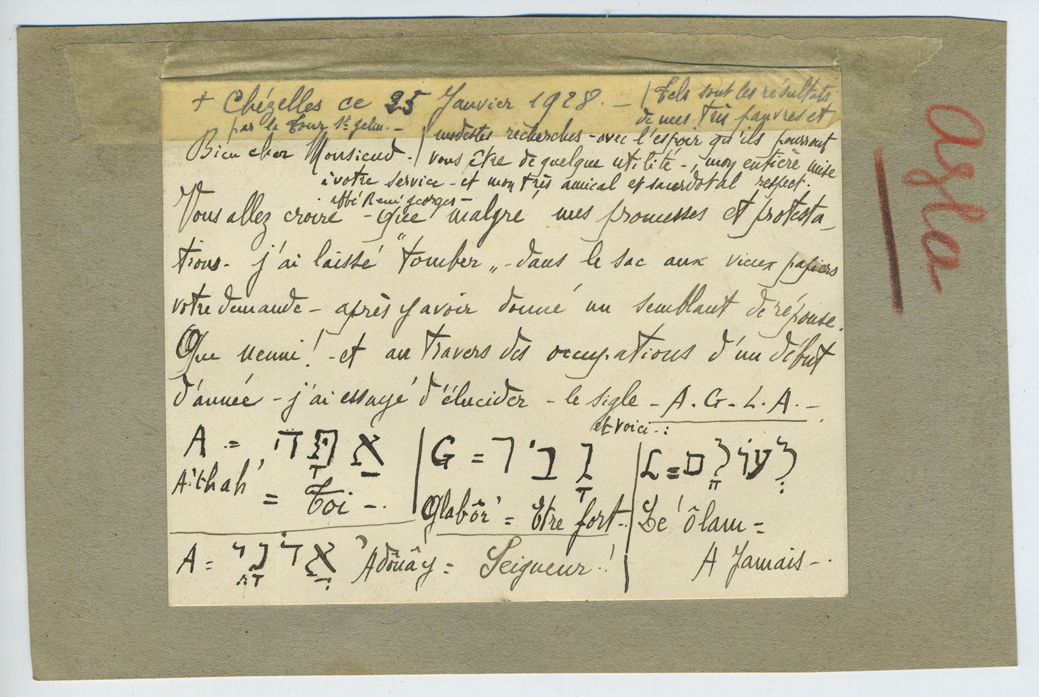 + Chézelles ce 25 Janvier 1928. –
par la Tour St Gelin. –
Bien cher Monsieur. –
Vous allez croire – que malgré mes promesses et protesta_
tions – j'ai laissé "tomber" – dans le sac aux vieux papiers
votre demande – après y avoir donné un semblant de réponse.
Que nenni ! – et au travers des occupations d'un début
d'année – j'ai essayé d'élucider – le sigle – A. G. L. A. –
et voici – :
A = אַתָּה
A'thah' = Toi –.
G = גָבִיר
Glabôr' = Etre fort –.
L = לְעוֹלָם
Le' ôlam =
A Jamais –.
A = אֲדֹנָי
'Adônây = Seigneur !
Tels sont les résultats
de mes très pauvres et
modestes recherches – avec l'espoir qu'ils pourront
vous être de quelque utilité – ; mon entière mise
à votre service – et mon très amical et sacerdotal respect.
abbé René Georges –
agla